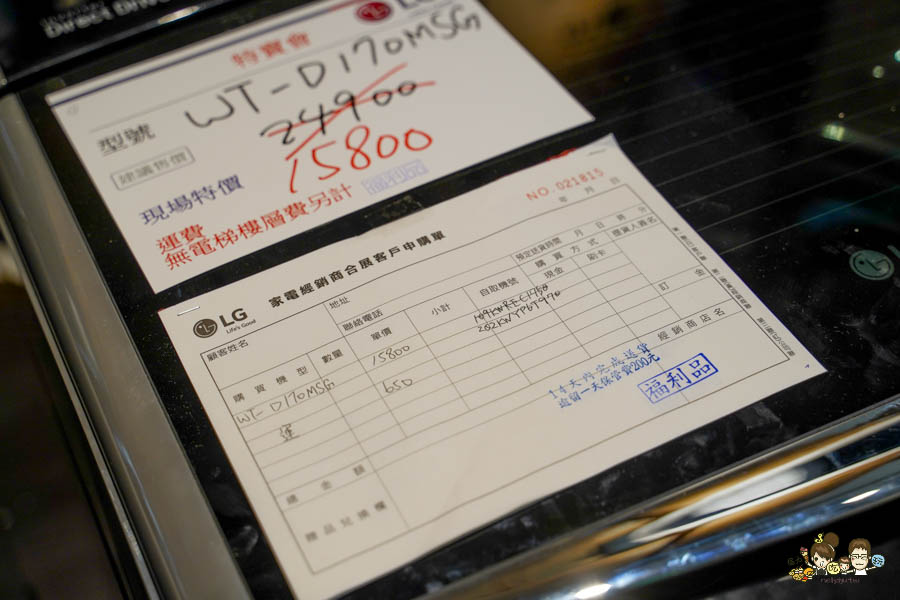 Direct Drive
LG
特賣會
型號 WT-D170MSG
建議售價 24900
現場特價 15800
運費
無電梯樓層費另計 福利品
NO.021815
年 月 日
LG
Life's Good
家電經銷商合展客戶申購單
顧客姓名 地址
聯絡電話 預定送貨時間 月 日 時 分
購買機型 數量 單價 小計 自取機號 購買方式 提貨人簽名
現金 刷卡
WT-D170MSG 15800
運 650
訂金
經銷商店名
14天內完成送貨
逾留一天保管費200元
福利品
總金額
贈品兌換欄